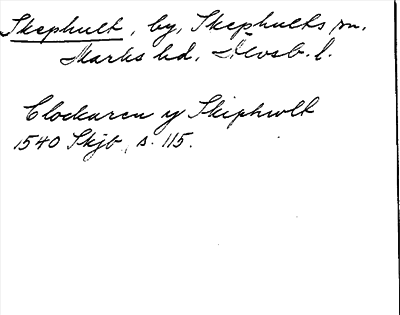 Skephult, by, Skephults sn.
Marks hd, Älvsb. l.
Clockaren y Skiphwlt
1540 Skjb, s. 115.